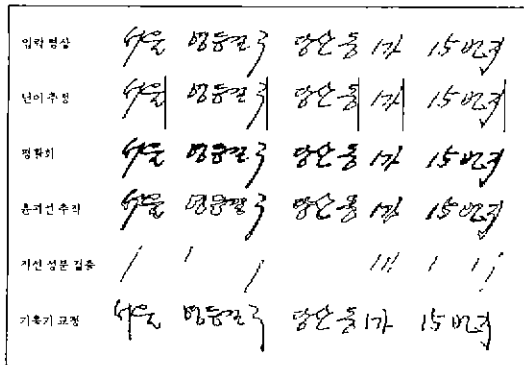 입력 영상 서울 영등포구 당산동 1가 15번지
넓이 추정 서울 영등포구 당산동 1가 15번지
평활화 서울 영등포구 당산동 1가 15번지
윤곽선 추적 서울 영등포구 당산동 1가 15번지
직선 성분 검출
기울기 교정 서울 영등포구 당산동 1가 15번지